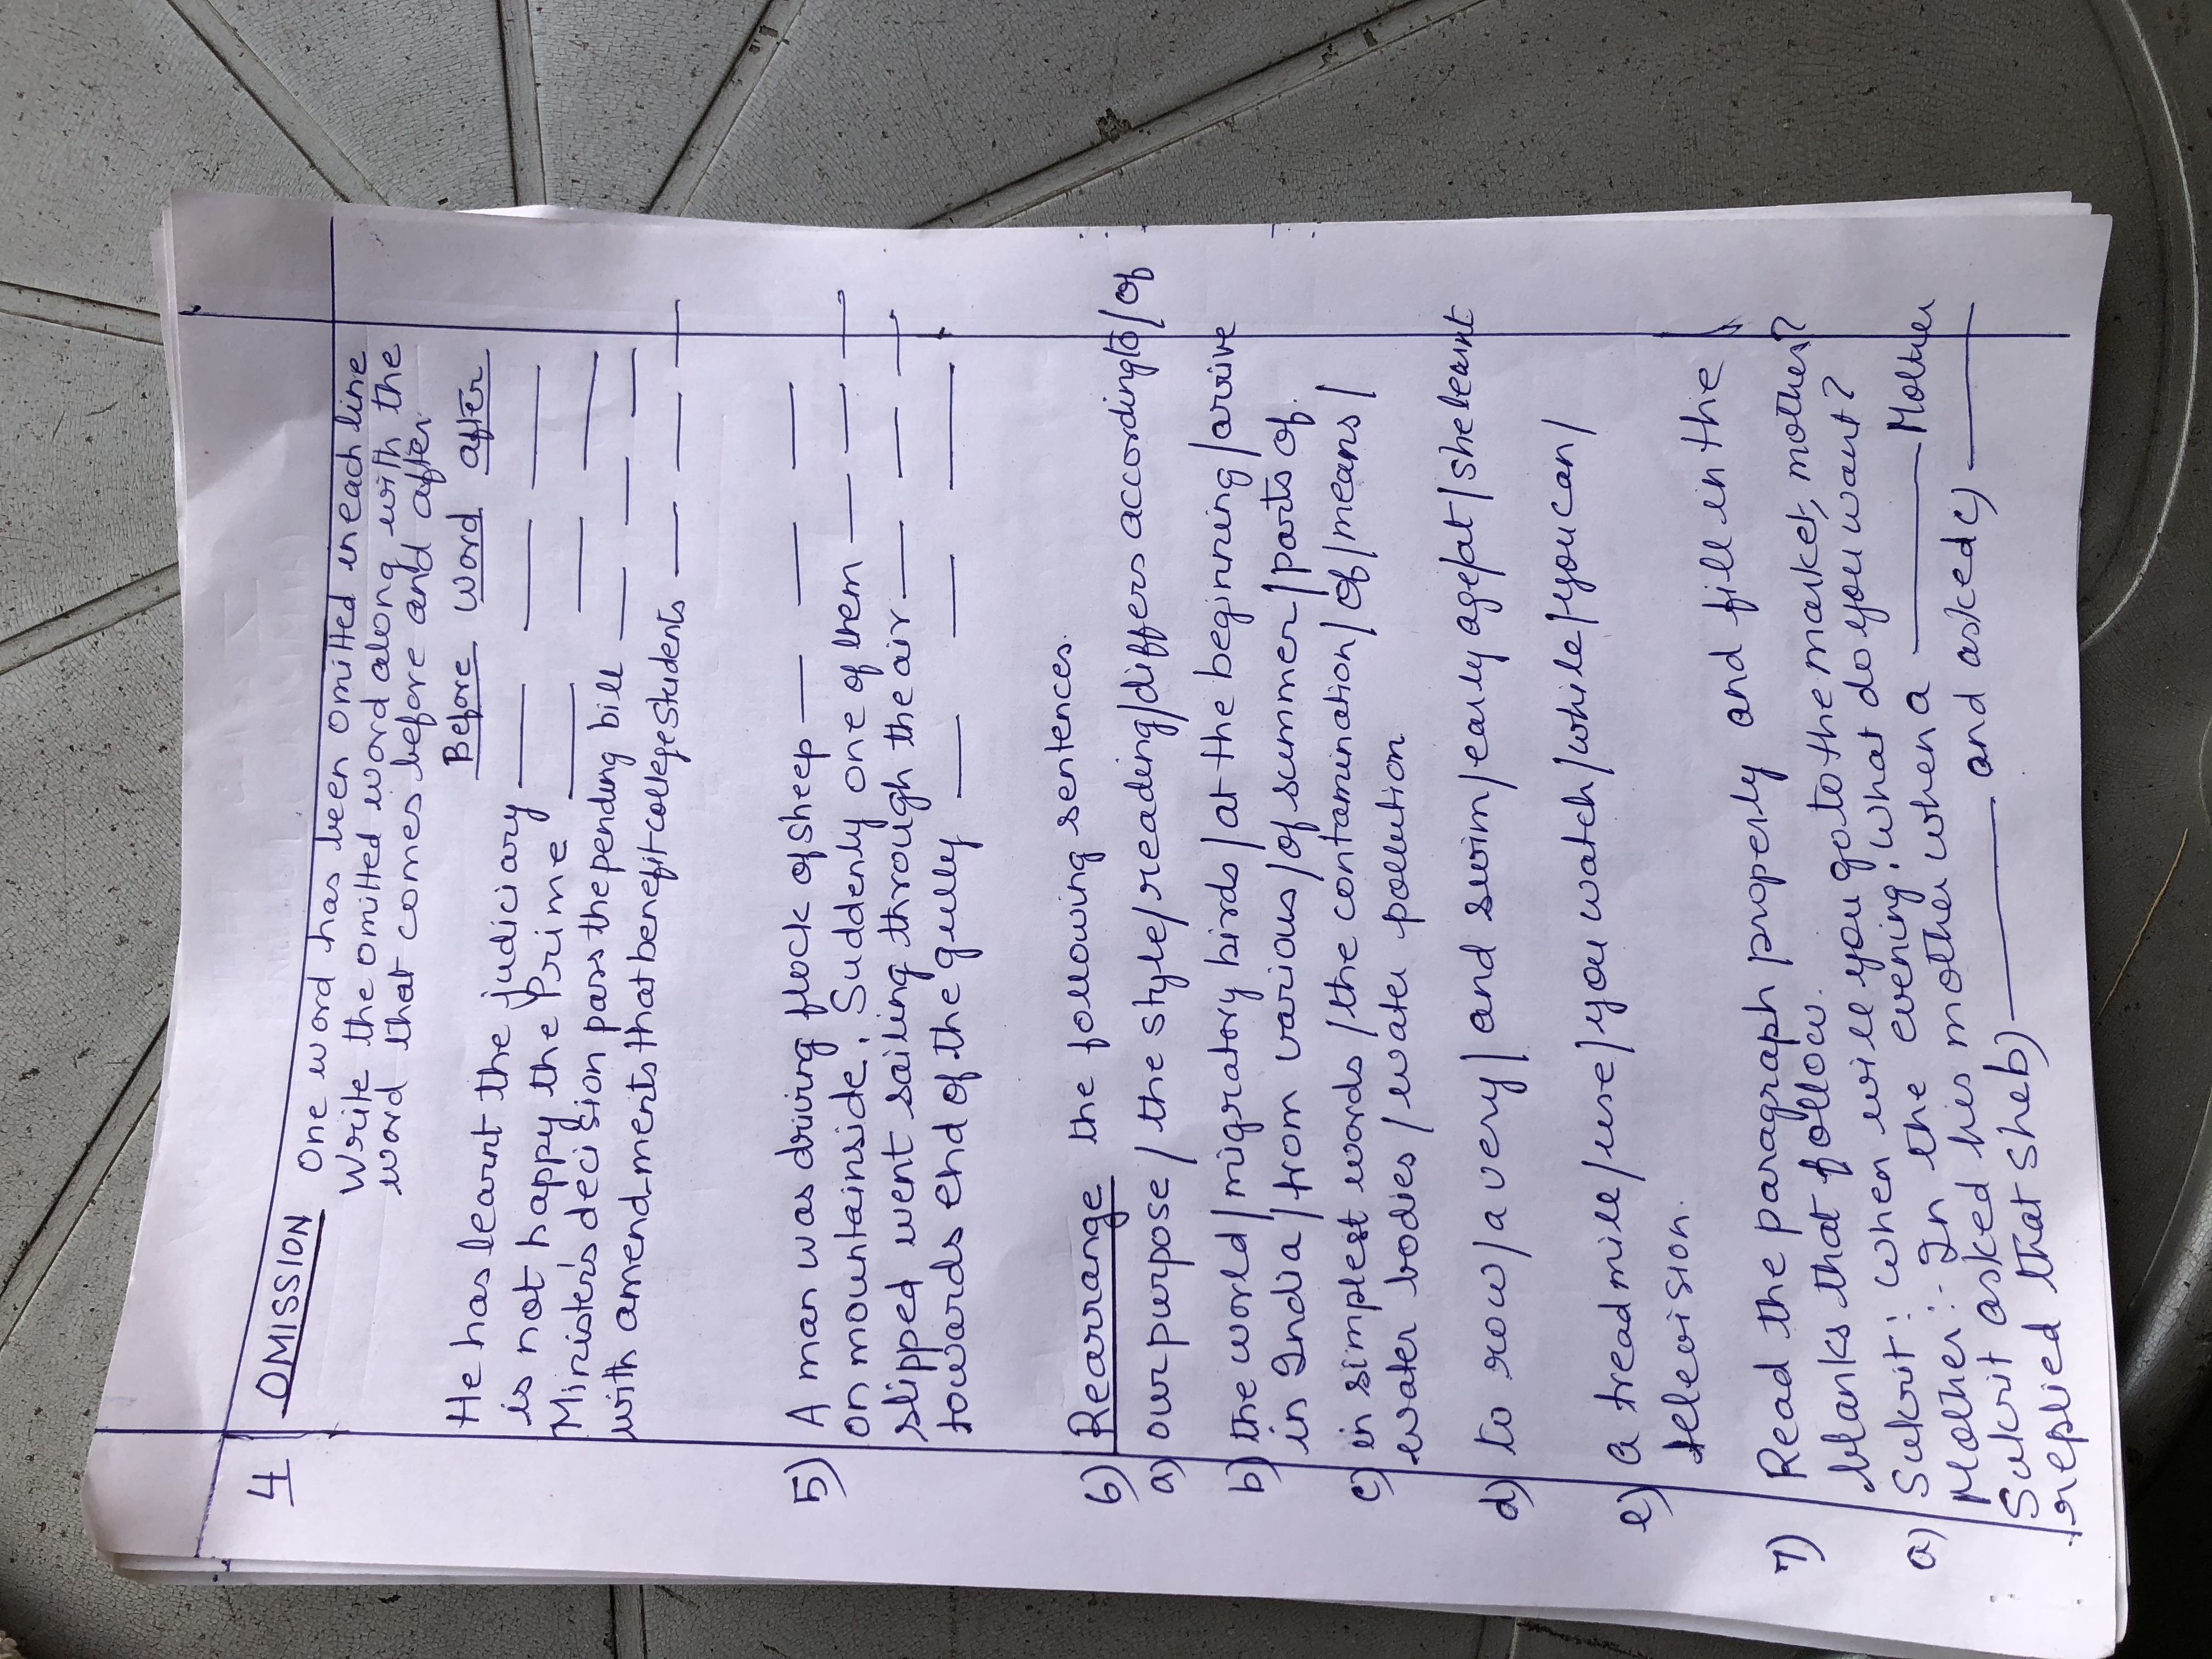 4 OMISSION One word has been omitted in each line
Write the omitted word along with the
word that comes before and after
Before word after
He has learnt the judiciary
is not happy the Prime
Minister's decision pass the pending bill
with amendments that benefit college students
5) A man was driving flock of sheep
on mountainside. Suddenly one of them
slipped went sailing through the air
towards end of the gully
6) Rearrange the following sentences.
a) our purpose / the style / reading / differs according to / of
b) the world / migratory birds / at the beginning / arrive
in India / from various / of summer / parts of
c) in simplest words / the contamination / of / means /
water bodies / water pollution
d) to row / a very / and swim / early age / at / she learnt
e) a treadmill / use / you watch / while / you can /
television.
7) Read the paragraph properly and fill in the
blanks that follow.
a) Sukrit: when will you go to the market, mother?
Mother:- In the evening. What do you want?
Sukrit asked his mother when a ______ Mother
replied that she b) ______ and asked c) ______